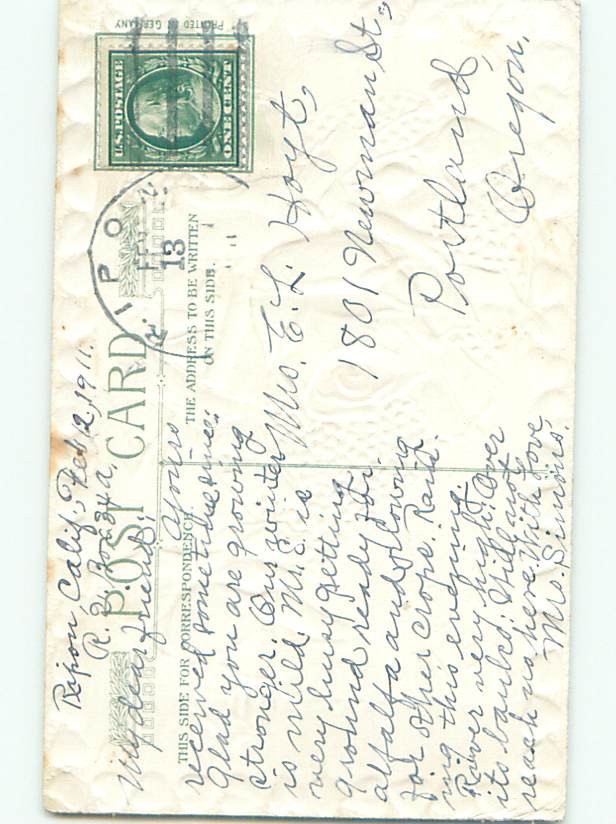 PRINTED IN GERMANY
U.S. POSTAGE
ONE CENT
RIPO
FEB
13
POST CARD
THE ADDRESS TO BE WRITTEN
ON THIS SIDE.
THIS SIDE FOR CORRESPONDENCE.
Mrs. E. L. Hoyt,
1801 Newman St.,
Portland,
Oregon.
Ripon, Calif, Feb 12, 1911.
R. 2. Box
My dear friend; Yours
received sometime since.
Glad you are growing
stronger. Our winter
is mild. Mr. S. is
very busy getting
ground ready for
alfalfa and plowing
for other crops. Rain-
ing this evening.
River very high. Over
its banks. Will not
reach us here. With love
Mrs. Simons.